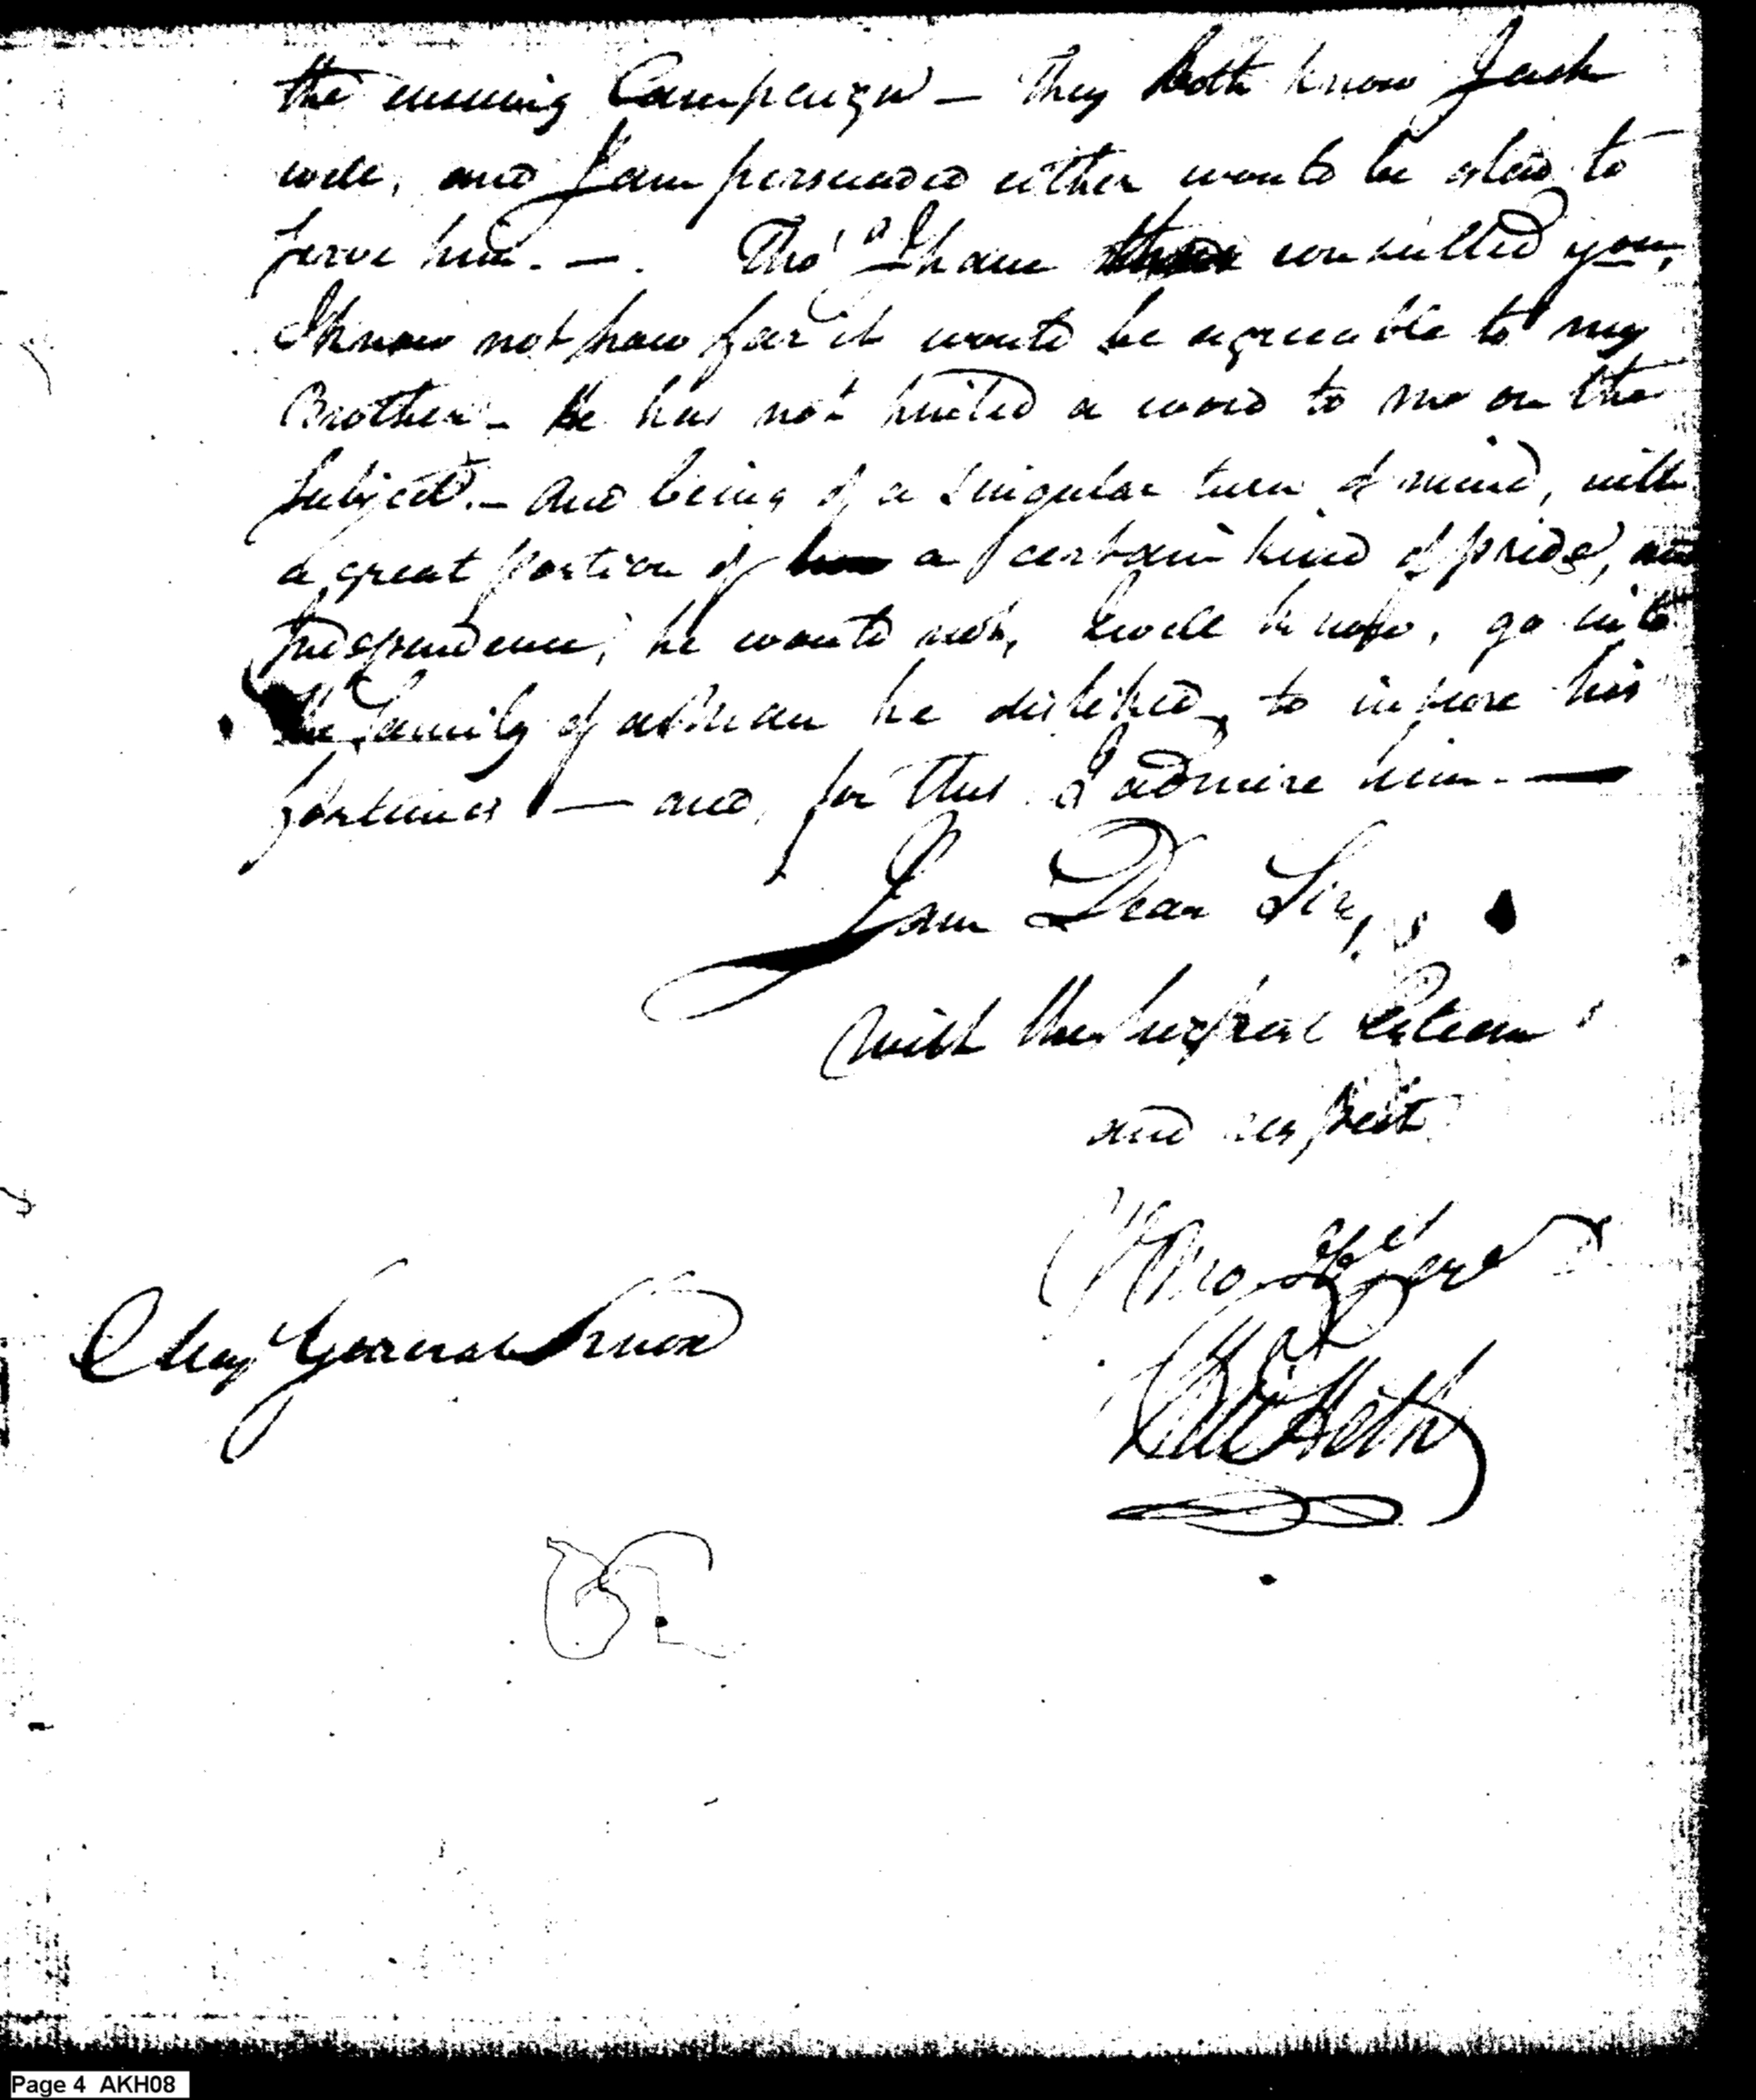 the ensuing Campaign — They both know Jack
well, and I am persuaded either would be glad to
serve him. —. Tho' I have consulted you,
I know not how far it would be agreeable to my
Brother — He has not hinted a word to me on the
subject. — And being of a singular turn of mind, with
a great portion of a certain kind of pride, and
Independence, he would not, I well know, go into
the family of a Man he disliked, to insure his
fortunes — and, for this I admire him. —
I am Dear Sir,
with the highest Esteem
and respect
Yr Mo
Will Heth
Maj General Knox
Page 4 AKH08